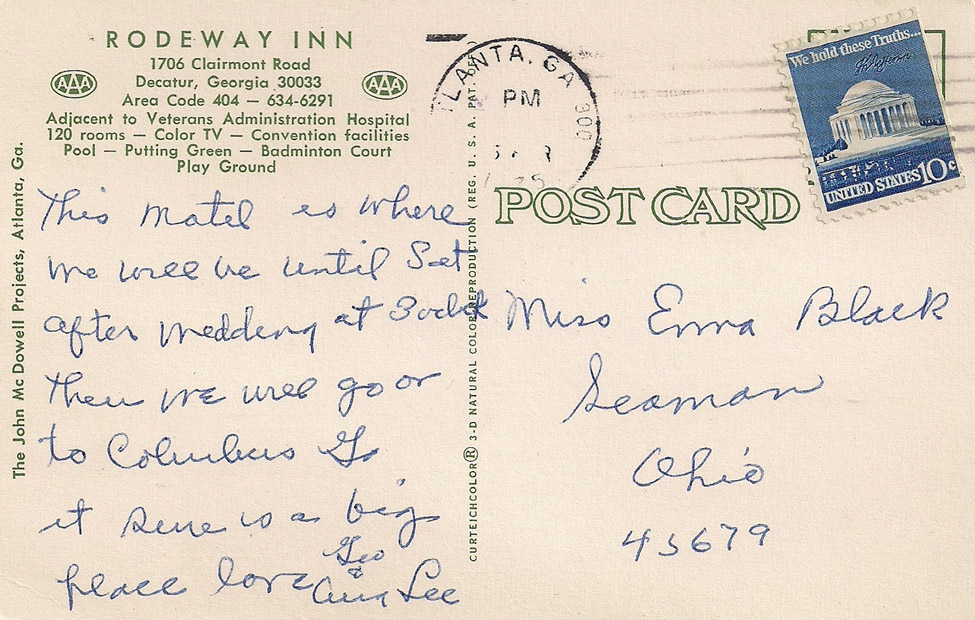 RODEWAY INN
1706 Clairmont Road
Decatur, Georgia 30033
Area Code 404 — 634-6291
Adjacent to Veterans Administration Hospital
120 rooms — Color TV — Convention facilities
Pool — Putting Green — Badminton Court
Play Ground
AAA
AAA
The John McDowell Projects, Atlanta, Ga.
This motel is where
we will be until Sat
after wedding at 3 oclok
then we will go on
to Columbus Ga
it sure is a big
place love Geo
& Ann Lee
CURTEICHCOLOR® 3-D NATURAL COLOR REPRODUCTION (REG. U. S. A. PAT. OFF.)
TLANTA, GA 300
PM
We hold these Truths...
UNITED STATES 10c
POST CARD
Miss Emma Black
Seaman
Ohio
45679